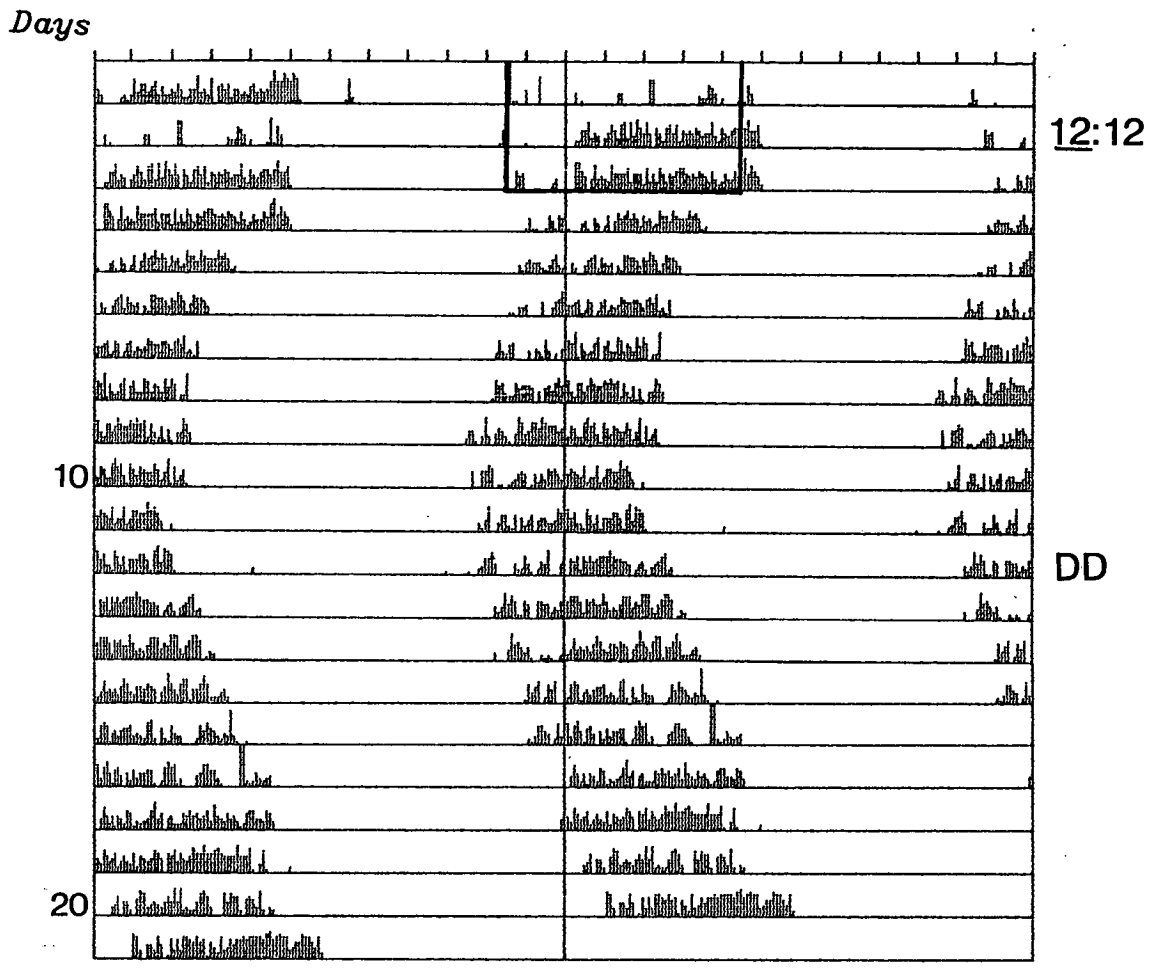 Days
12:12
10
DD
20